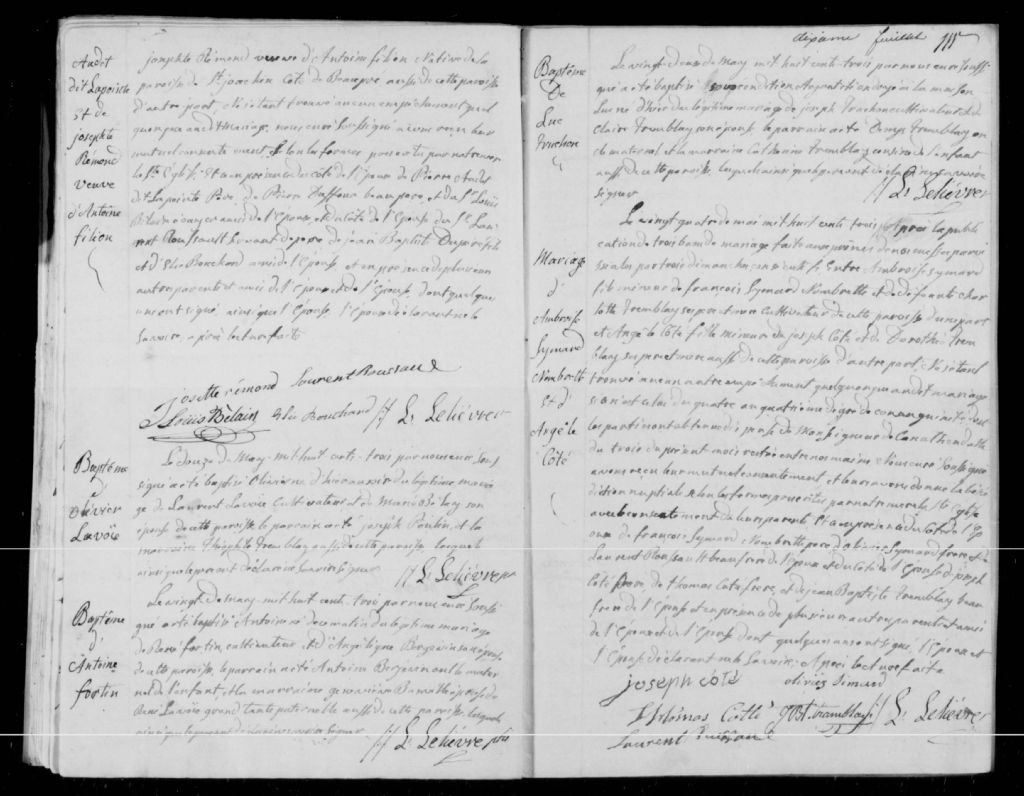 Audet
dit Lapointe
Et de
josephte
Rémond
veuve
d'Antoine
filion
josephte Rémond veuve d'Antoine filion Native de la
paroisse de St joachim Coté de Beaupré aussi de cette paroisse
d'autre part, Et s'étant trouvé aucun empêchement quel
quonque audt Mariage, nous curé Soussigné avons reçu leur
mutuel consentement selon les formes prescrites par notre mere
la Ste Eglise, Et en présence du coté de l'Epoux de Pierre Audet
dt Lapointe Pere, de Pierre Duffour beaupere, et de Sr Louis
Belain amis de l'Epoux et du coté de l'Epouse du Sr Lau
rent Roussault de jean Baptiste
Et d' Elie Bouchard ami de l'Epouse, et en présence de plusieurs
autres parents et amis de l'Epoux et de l'Epouse, dont quelque
uns ont signé, ainsi que l'Epouse, l'époux déclarant ne le
Savoir, après lecture faite
josette rémond Laurent Roussau
Louis Bélain Elie Bouchard L. Lelièvre
Baptême
d'
olivier
Lavoie
Le douze de May mil huit cent-trois par nous curé Sous
signé a été baptisé Olivier né d'hier au soir du légitime maria
ge de Laurent Lavoie Cultivateur et de Marie Boily son
épouse de cette paroisse le parrain a été joseph Pontin, et la
marraine Théophile Tremblay aussi de cette paroisse lesquels
ainsi que le pere ont déclaré ne savoir signer L. Lelièvre ptre
Baptême
d'
Antoine
fortin
Le vingt de May mil huit cent-trois par nous curé Soussi
gné a été baptisé Antoine né de ce matin du légitime mariage
de René fortin cultivateur et d'Angélique Bergeron son épouse
de cette paroisse, le parrain a été Antoine Bergeron oncle mater
nel de l'enfant, et la marraine épouse de
René Lavoie grand tante paternelle aussi de cette paroisse, lesquels
ainsi que le pere ont déclaré ne savoir signer L. Lelièvre ptre
dixieme feuillet
Baptême
De
Luc
truchon
Le vingt deux de May mil huit cent-trois par nous curé Soussi
gné a été baptisé sous condition ayant été ondoyé à la maison
Luc né d'hier du légitime mariage de joseph Truchon cultivateur et de
Claire Tremblay son épouse le parrain a été Denys Tremblay on
cle maternel et la marraine Catherine Tremblay cousine de l'enfant
aussi de cette paroisse, lesquels ainsi que le pere ont déclaré ne savoir
signer L. Lelièvre
Mariage
d'
Ambroise
Symard
Nombrette
Et d'
Angèle
Côté
Le vingt quatre de mai mil huit cent trois après la publi
cation de trois bans de mariage faite aux prônes de nos messes parois
siales par trois dimanches consécutifs, Entre Ambroise Symard
fils mineur de françois Symard Nombrette et de défunte Char
lotte Tremblay ses pere et mere cultivateur de cette paroisse d'une part
et Angèle Côté fille mineure de joseph Côté et de Dorothée Trem
blay ses pere et mere aussi de cette paroisse d'autre part, Ne s'étant
trouvé aucun autre empêchement quelquonque audt mariage
si ce n'est celui du quatre au quatrième degré de consanguinité, dont
les parties ont obtenu dispense de Monseigneur de Canathe en date
du trois du présent mois restée entre nos mains Nous curé Soussigné
avons reçu leur mutuel consentement, et leur avons donné la béné
diction nuptiale selon les formes prescrites par notre mere la Ste Eglise
avec le consentement de leurs parents Et en présence du coté de l'Ep
oux de françois Symard Nombrette pere, d'olivier Symard frere, et de
Laurent Roussault beaufrere de l'Epoux et du coté de l'Epouse de joseph
Côté pere, de thomas Côté frere, et de jean Baptiste Tremblay beau
frere de l'Epouse et en présence de plusieurs autres parents et amis
de l'Epoux et de l'Epouse dont quelques uns ont signé, l'Epoux et
l'Epouse déclarant ne le Savoir. Après lecture faite
joseph côté olivier Simard
thômas Cotté jBt. tramblay L. Lelièvre
Laurent Russau